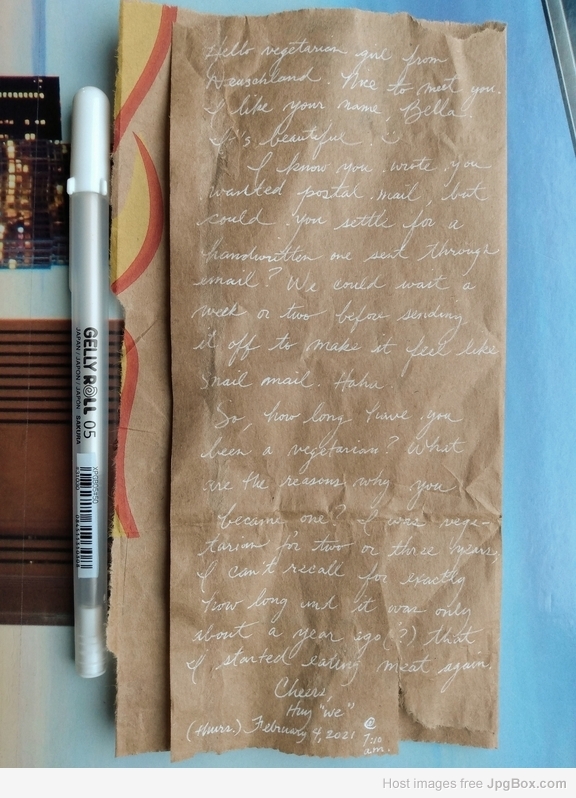 Hello vegetarian girl from
Deutschland. Nice to meet you.
I like your name, Bella.
It's beautiful. :)
I know you wrote you
wanted postal mail, but
could you settle for a
handwritten one sent through
email? We could wait a
week or two before sending
it off to make it feel like
snail mail. Haha.
So, how long have you
been a vegetarian? What
are the reasons why you
became one? I was vege-
tarian for two or three years,
I can't recall for exactly
how long and it was only
about a year ago (?) that
I started eating meat again.
Cheers,
"we"
(thurs.) February 4, 2021 @
7:10
a.m.
GELLY ROLL 05
JAPAN / JAPON / JAPÓN SAKURA
Host images free JpgBox.com